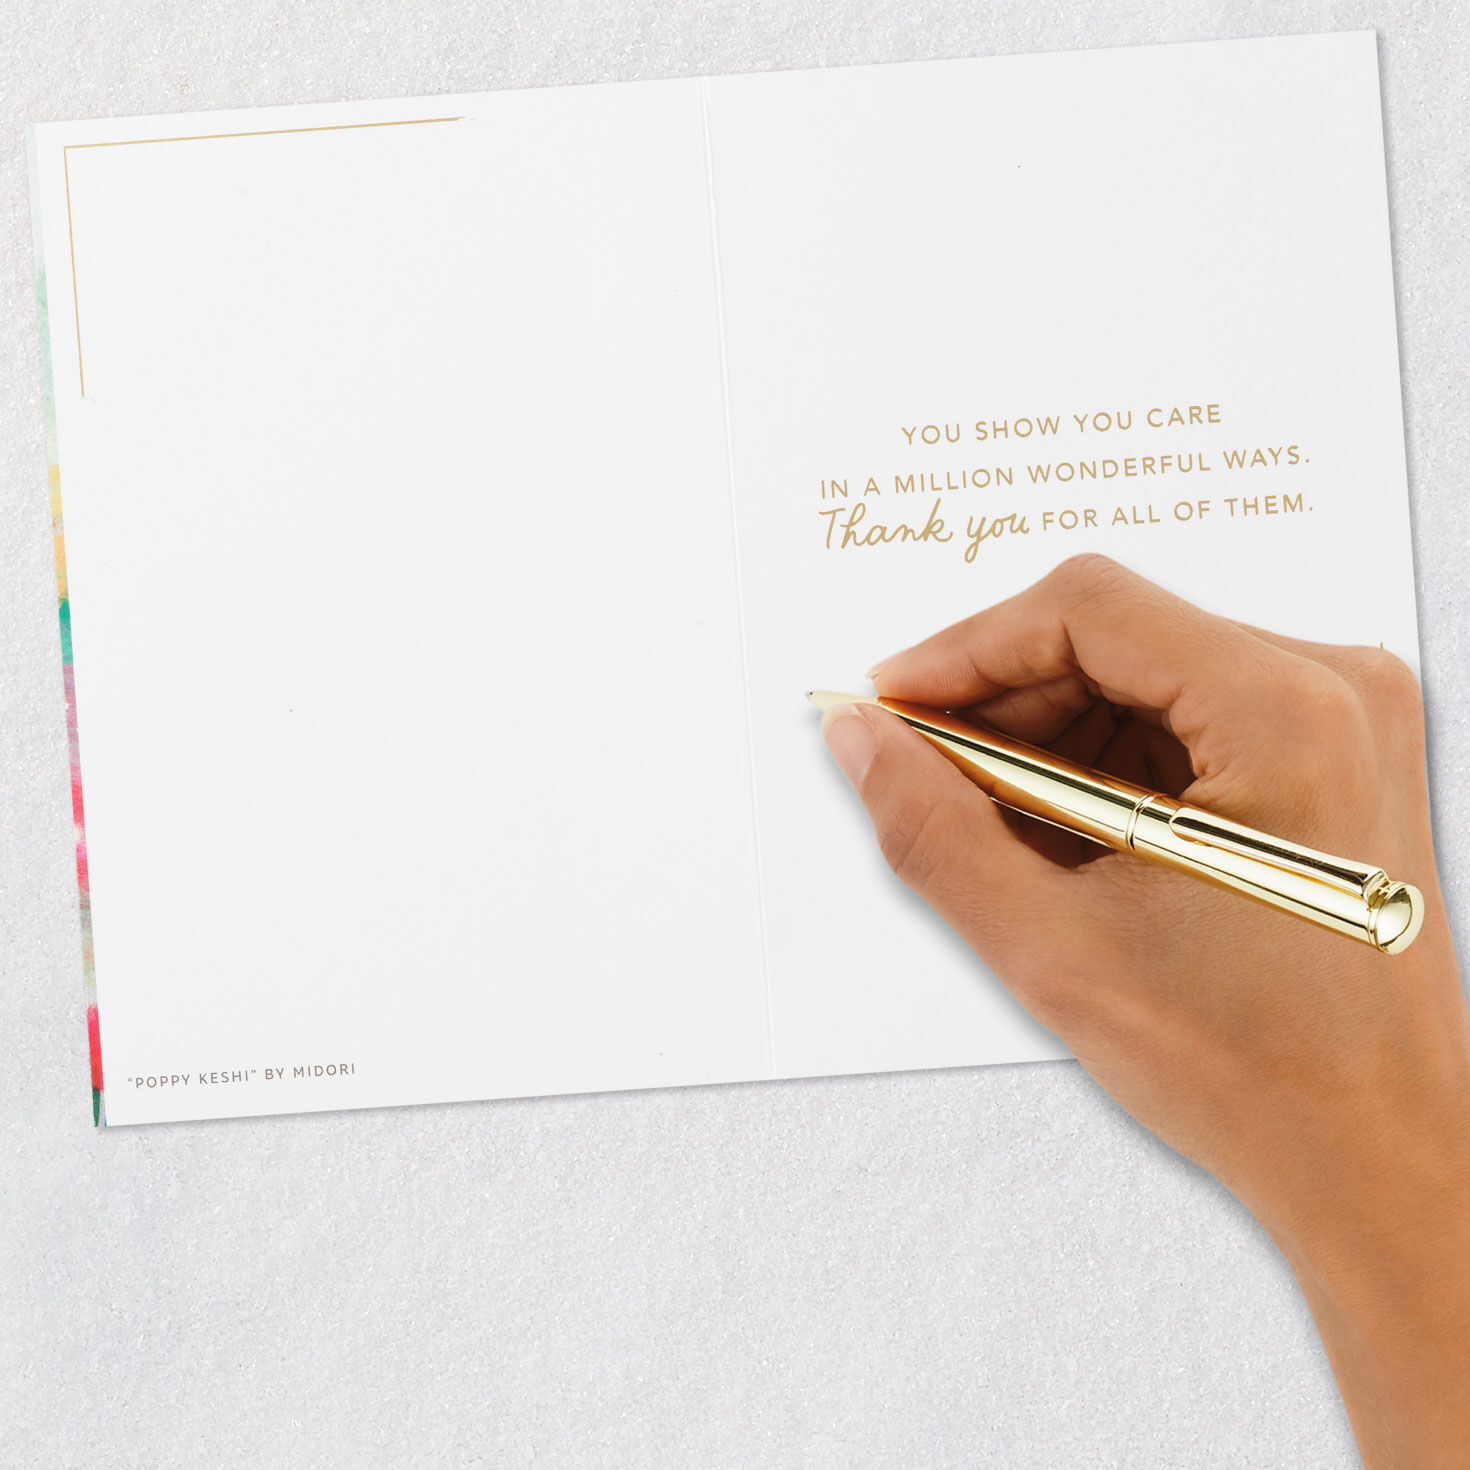 YOU SHOW YOU CARE
IN A MILLION WONDERFUL WAYS.
Thank you FOR ALL OF THEM.
“POPPY KESHI” BY MIDORI